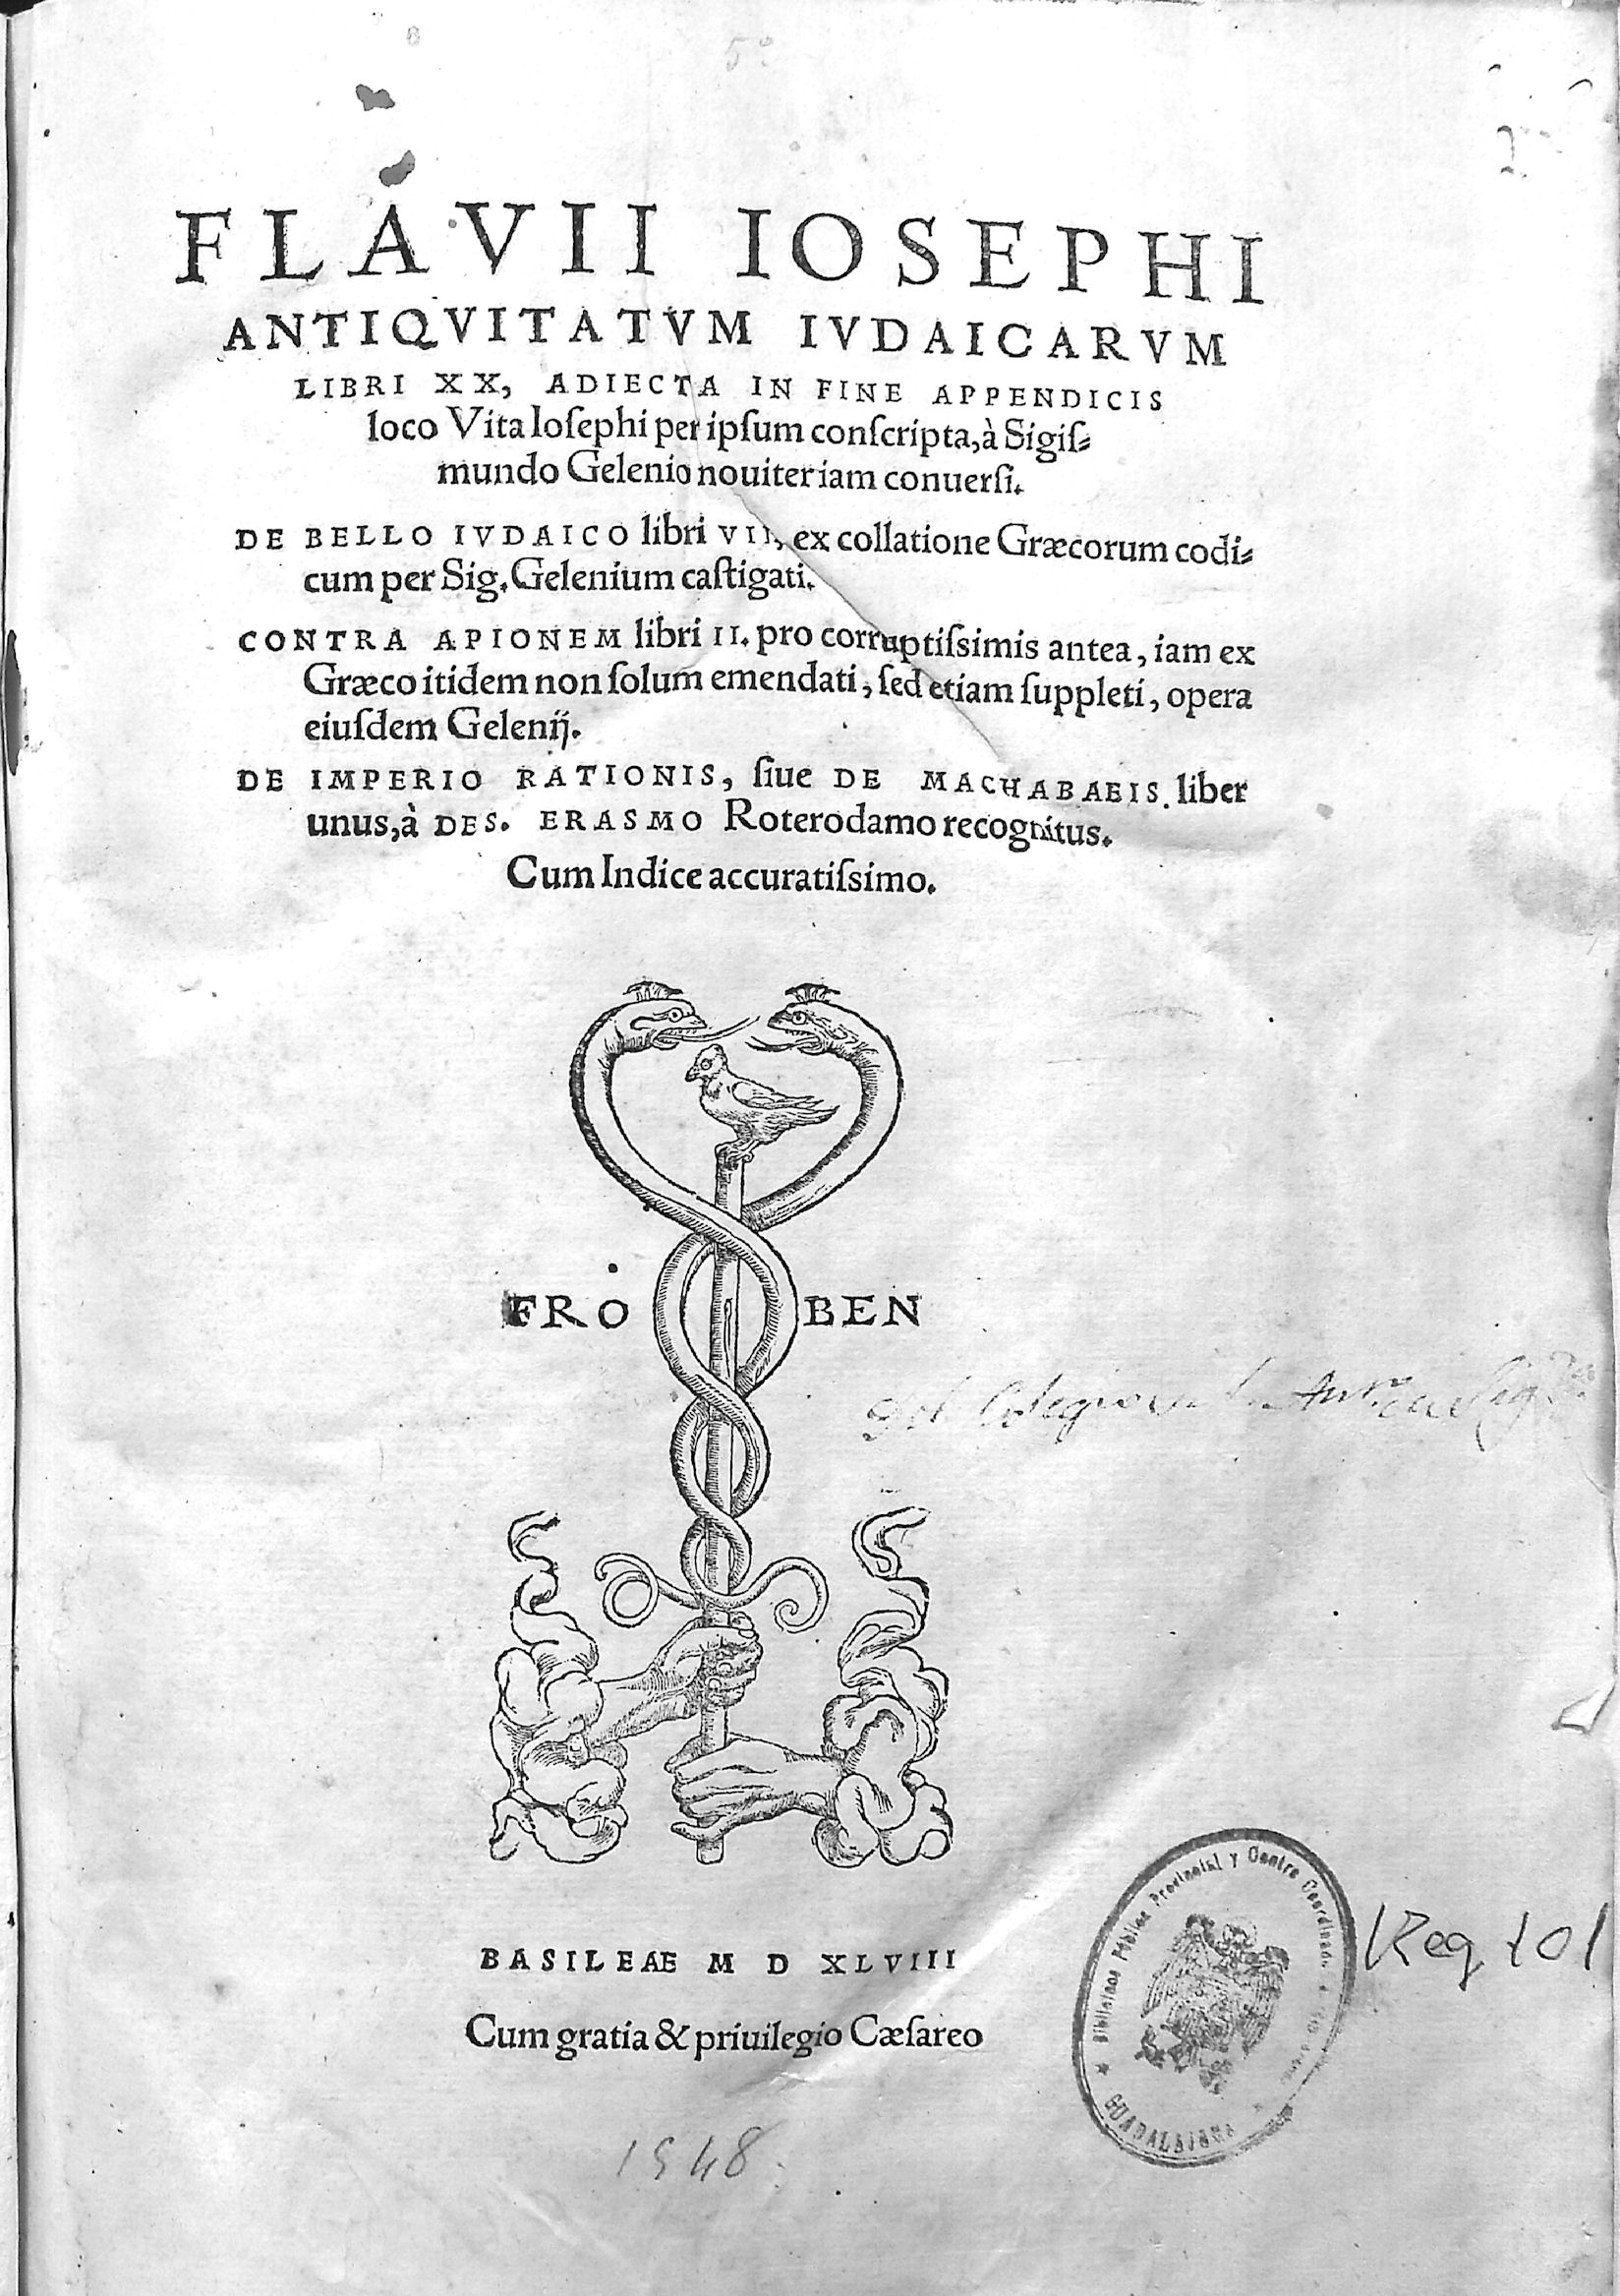 5º
FLAVII IOSEPHI
ANTIQVITATVM IVDAICARVM
LIBRI XX, ADIECTA IN FINE APPENDICIS
loco Vita Ioſephi per ipſum conſcripta, à Sigiſ⸗
mundo Gelenio nouiter iam conuerſi.
DE BELLO IVDAICO libri VII, ex collatione Græcorum codi⸗
cum per Sig. Gelenium caſtigati.
CONTRA APIONEM libri II. pro corruptiſsimis antea, iam ex
Græco itidem non ſolum emendati, ſed etiam ſuppleti, opera
eiuſdem Gelenij.
DE IMPERIO RATIONIS, ſiue DE MACHABAEIS. liber
unus, à DES. ERASMO Roterodamo recognitus.
Cum Indice accuratiſsimo.
FRO BEN
del Colegio
BASILEAE M D XLVIII
Cum gratia & priuilegio Cæſareo
Biblioteca Pública Provincial y Centro Coordinador
GUADALAJARA
Reg 101
1548.